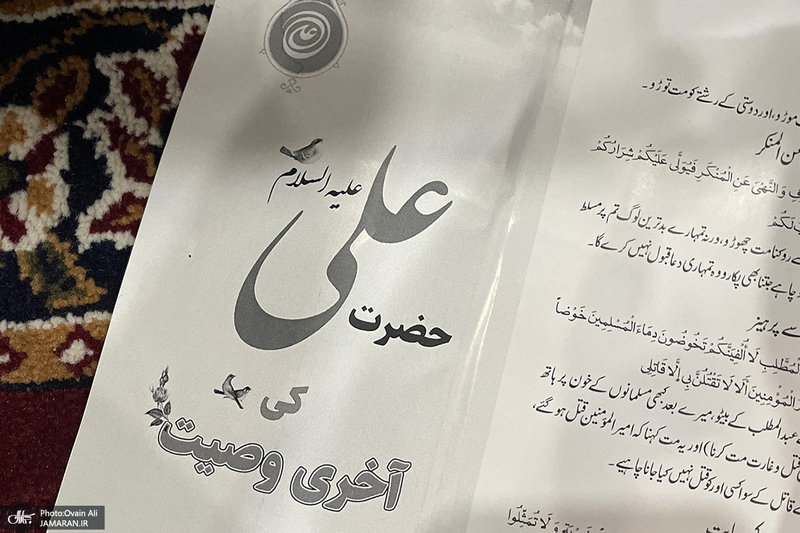 حضرت علی علیہ السلام
کی
آخری وصیت
موڑو، اور دوستی کے رشتے کو مت توڑو۔
عن المنکر
وَالنَّهْيَ عَنِ الْمُنْكَرِ فَيُوَلَّى عَلَيْكُمْ شِرَارُكُمْ
لَكُمْ
روکنا مت چھوڑو، ورنہ تمہارے بدترین لوگ تم پر مسلط
چاہے جتنا بھی پکارو وہ تمہاری دعا قبول نہیں کرے گا۔
سے پرہیز
الْمُطَّلِبِ لَا أُلْفِيَنَّكُمْ تَخُوضُونَ دِمَاءَ الْمُسْلِمِينَ خَوْضاً
الْمُؤْمِنِينَ أَلَا لَا تَقْتُلُنَّ بِي إِلَّا قَاتِلِي
عبدالمطلب کے بیٹو، میرے بعد کبھی مسلمانوں کے خون پر ہاتھ
قتل و غارت مت کرنا) اور یہ مت کہنا کہ امیر المؤمنین قتل ہو گئے،
قاتل کے سوا کسی اور کو قتل نہیں کیا جانا چاہیے۔
وَلَا تُمَثِّلُوا
Photo:Ovain Ali
JAMARAN.IR